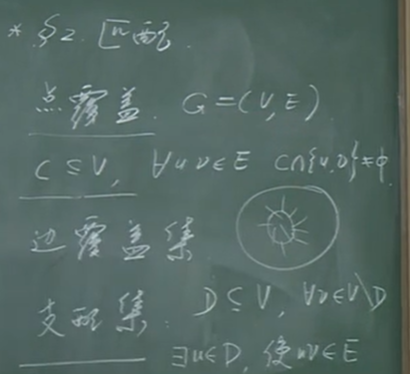 * §2. 匹配.
点覆盖. G=(V,E)
C⊆V, ∀uv∈E C∩{u,v}≠φ.
边覆盖集
支配集: D⊆V, ∀v∈V\D
∃u∈D, 使uv∈E